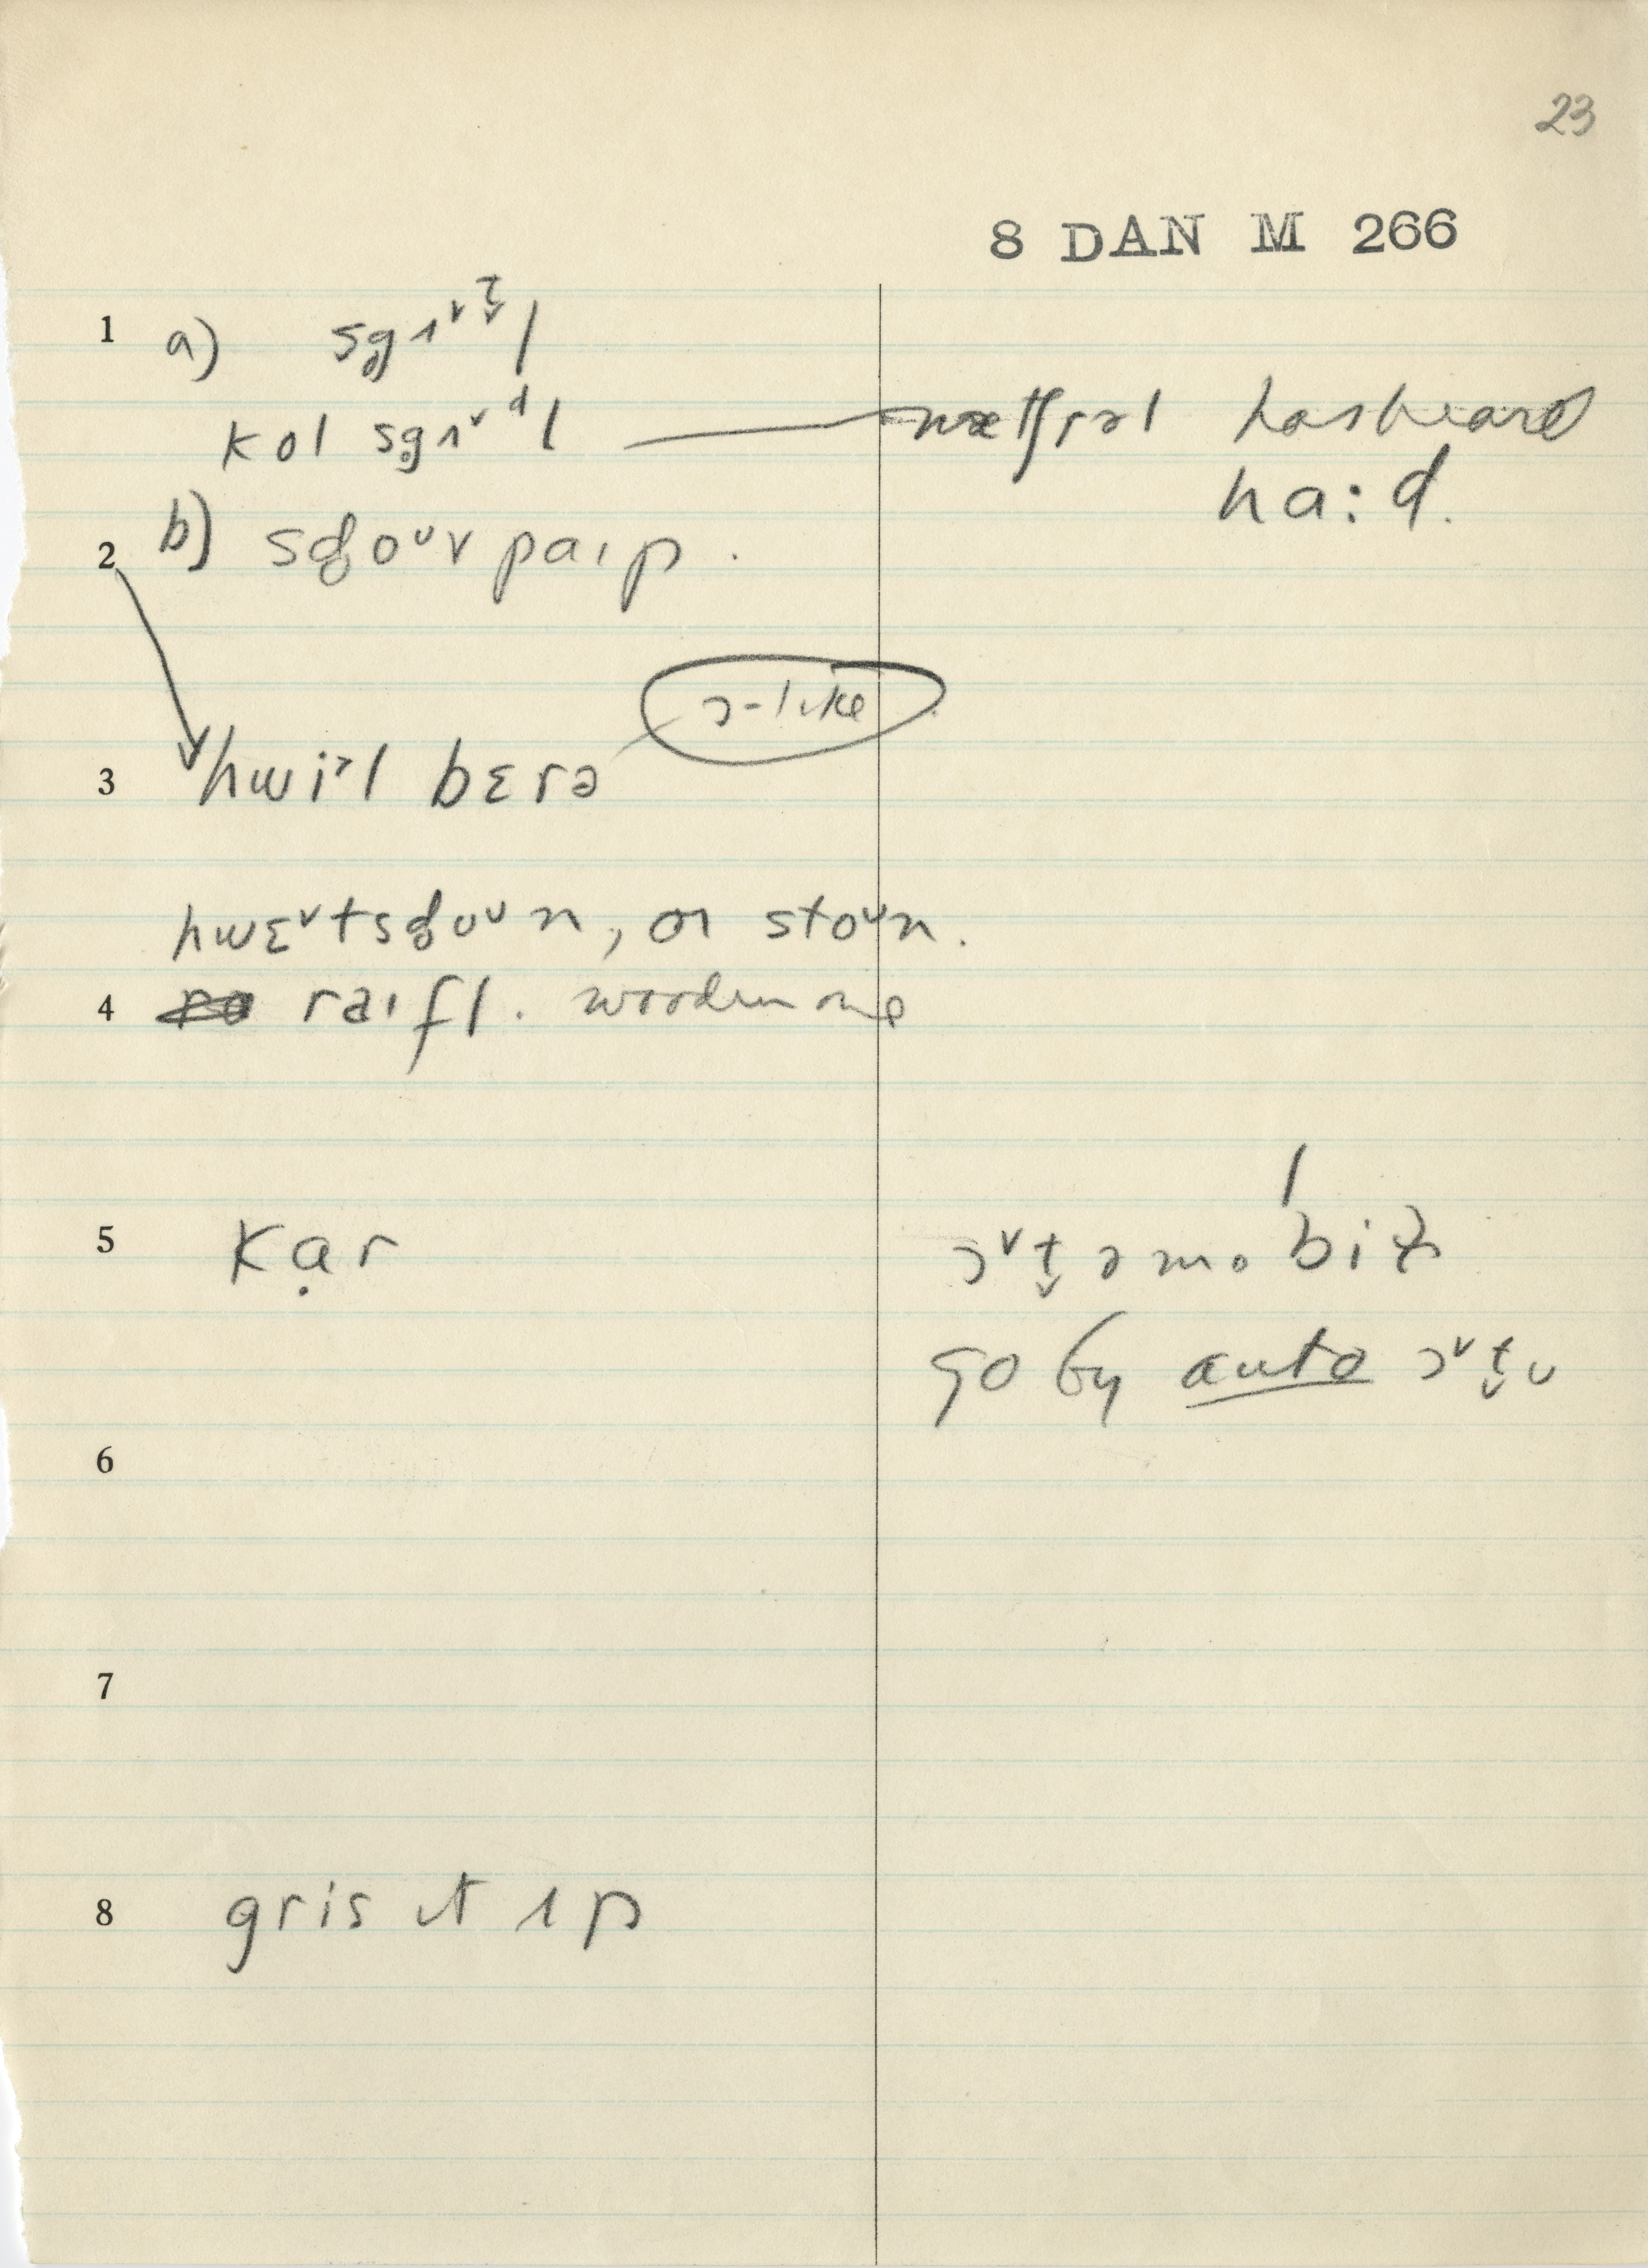 23
8 DAN M 266
1 a) sgʌᵛt̬l
kol sgʌᵛdl — nætʃrəl has heard
ha:d.
2 b) sd̥oᵘv paɪp.
ɔ-like
3 hwiᵊl bɛrə
hwɛᵛtsd̥oᵘn, or stoᵘn.
4 raɪfl. wooden one
5 kạr
ɔᵛt̬əmobil
go by auto ɔᵛt̬ʊ
6
7
8 gris ɪt ʌp